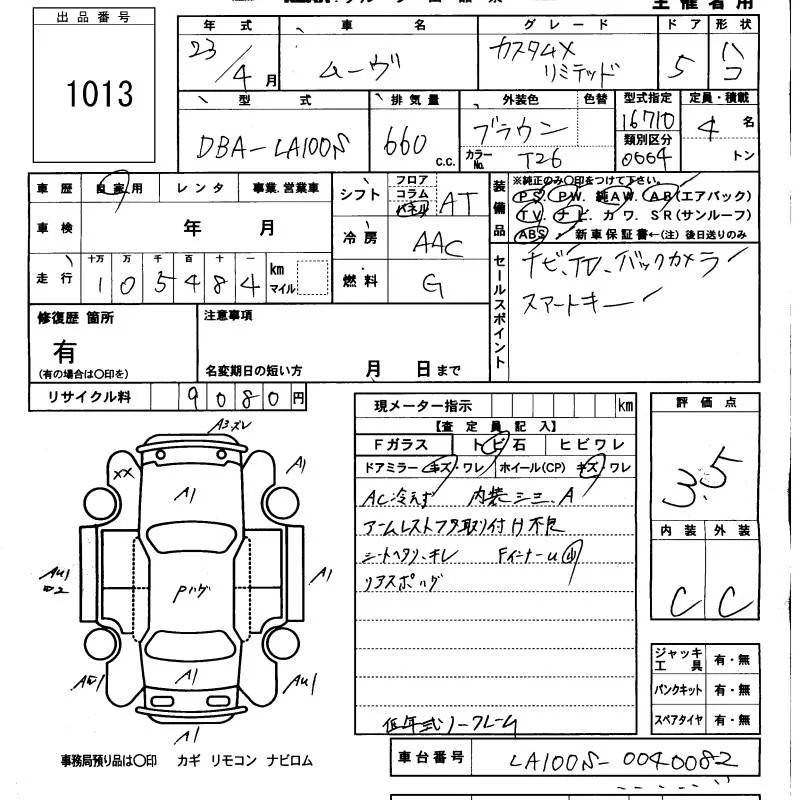 主催者用
出品番号
1013
年式 車名 グレード ドア 形状
23/4月 ムーヴ カスタムX リミテッド 5 ハコ
型式 排気量 外装色 色替 型式指定 定員・積載
DBA-LA100S 660 c.c. ブラウン 16710 4名
カラーNo. T26 類別区分 0064 トン
車歴 自家用 レンタ 事業.営業車
シフト フロア コラム パネル AT
装備品 ※純正のみ〇印をつけて下さい。
PS. PW. 純AW. AB(エアバック)
TV ナビ. カワ. SR(サンルーフ)
ABS 新車保証書←(注)後日送りのみ
車検 年 月
冷房 AAC
走行 十万 万 千 百 十 一 km マイル
105484
燃料 G
セールスポイント
ナビ、TV、バックカメラ
スマートキー
修復歴 箇所
有
(有の場合は〇印を)
注意事項
名変期日の短い方 月 日まで
リサイクル料 9080円
現メーター指示 km
【査定員記入】
Fガラス トビ石 ヒビワレ
ドアミラー キズ・ワレ ホイール(CP) キズ ワレ
AC冷えず 内装シミ.A
アームレストフタ取り付け不良
シートヘタリ、キレ FインナーU
リアスポハゲ
低年式ノークレーム
評価点
3.5
内装 外装
C C
ジャッキ工具 有・無
パンクキット 有・無
スペアタイヤ 有・無
A3ズレ
XX
A1
A1
AU1
A1
Pハゲ
A1
AU1
A1
事務局預り品は〇印 カギ リモコン ナビロム
車台番号 LA100S-0040082